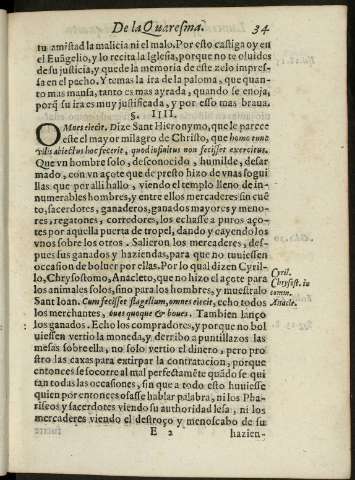 De la Quaresma. 34
tu amistad la malicia ni el malo. Por esto castiga oy en
el Euāgelio, y lo recita la Iglesia, porque no te oluides
de su justicia, y quede la memoria de este zelo impres-
sa en el pecho. Y temas la ira de la paloma, que quan-
to mas mansa, tanto es mas ayrada, quando se enoja,
porq̃ su ira es muy justificada, y por esso mas braua.
§. IIII.
OMnes eiecit. Dize Sant Hieronymo, que le parece
este el mayor milagro de Christo, que homo tunc
vilis abiectus hoc fecerit, quod infinitus non fecisset exercitus.
Que vn hombre solo, desconocido, humilde, desar-
mado, con vn açote que de presto hizo de vnas sogui
llas que por alli hallo, viendo el templo lleno de in-
numerables hombres, y entre ellos mercaderes sin cuē
to, sacerdotes, ganaderos, ganados mayores y meno-
res, regatones, corredores, los echasse a puros aço-
tes por aquella puerta de tropel, dando y cayendo los
vnos sobre los otros. Salieron los mercaderes, des-
pues sus ganados y haziendas, para que no tuuiessen
occasion de boluer por ellas. Por lo qual dizen Cyril-
lo, Chrysostomo, Anacleto, que no hizo el açote para
los animales solos, sino para los hombres, y muestralo
Sant Ioan. Cum fecisset flagellum, omnes eiecit, echo todos
los merchantes, oues quoque & boues. Tambien lanço
los ganados. Echo los compradores, y porque no bol
uiessen vertio la moneda, y derribo a puntillazos las
mesas sobre ella, no solo vertio el dinero, pero pro-
stro las caxas para extirpar la contratacion, porque
entonces se socorre al mal perfectamēte quādo se qui
tan todas las occasiones, sin que a todo esto huuiesse
quien por entonces osasse hablar palabra, ni los Pha-
riseos y sacerdotes viendo su authoridad lesa, ni los
mercaderes viendo el destroço y menoscabo de su
Cyril.
Chrysost. in
Anacle.
E 2 hazien-